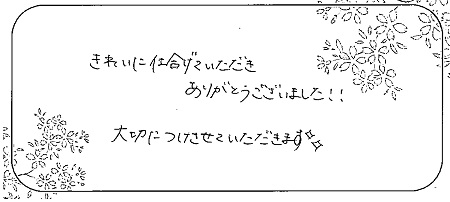 きれいに仕合げていただき
ありがとうございました!!
大切につけさせていただきます